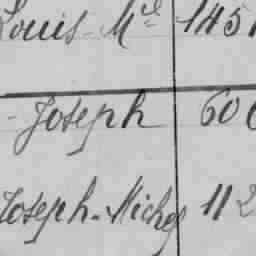 Louis Mel 1451
- Joseph 600
Joseph-Michel 112